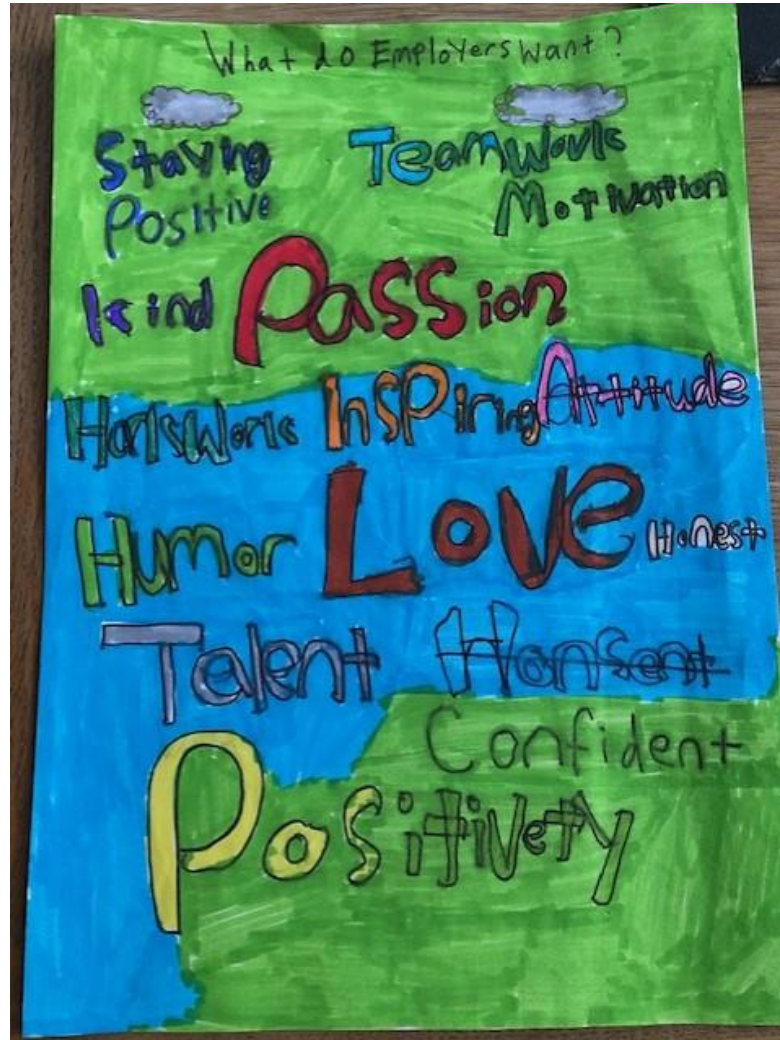 What do Employers want?
Staying Teamwork
Positive Motivation
Kind Passion
Hardwork Inspiring Attitude
Humor Love Honest
Talent Honsent
Confident
Positivety